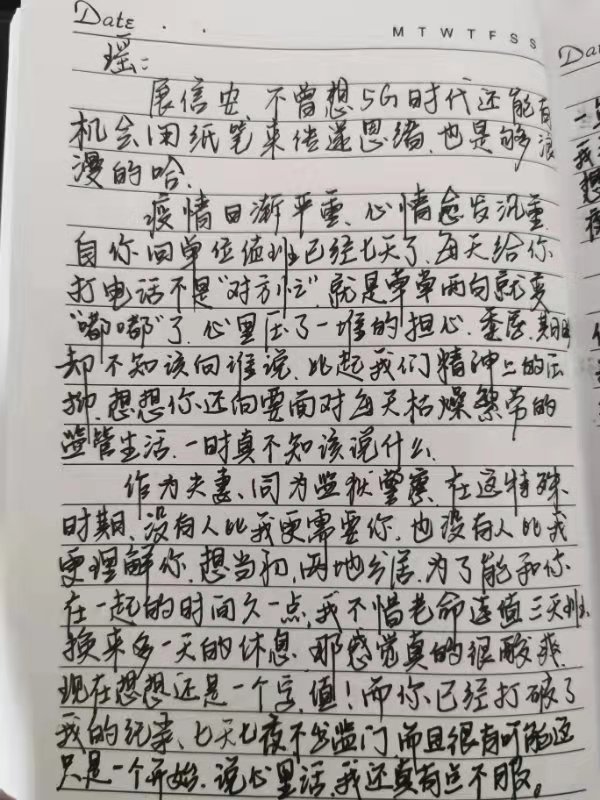 Date . .
M T W T F S S
瑶:
展信安 不曾想5G时代还能有
机会用纸笔来传递思绪,也是够浪
漫的哈.
疫情日渐严重、心情愈发沉重
自你回单位值班已经七天了,每天给你
打电话不是“对方忙”就是草草两句就变
“嘟嘟”了,心里压了一堆的担心、委屈、期盼
却不知该向谁说、比起我们精神上的压
抑.想想你还向要面对每天枯燥繁带的
监管生活.一时真不知该说什么
作为夫妻、同为监狱警察,在这特殊
时期,没有人比我更需要你,也没有人比我
更理解你,想当初,两地分居,为了能和你
在一起的时间久一点,我不惜老命连值三天班
换来多一天的休息.那感觉真的很酸爽
现在想想还是一个字,值!而你已经打破了
我的纪录、七天七夜不出监门而且很有可能这
只是一个开始.说心里话,我还真有点不服。
Da